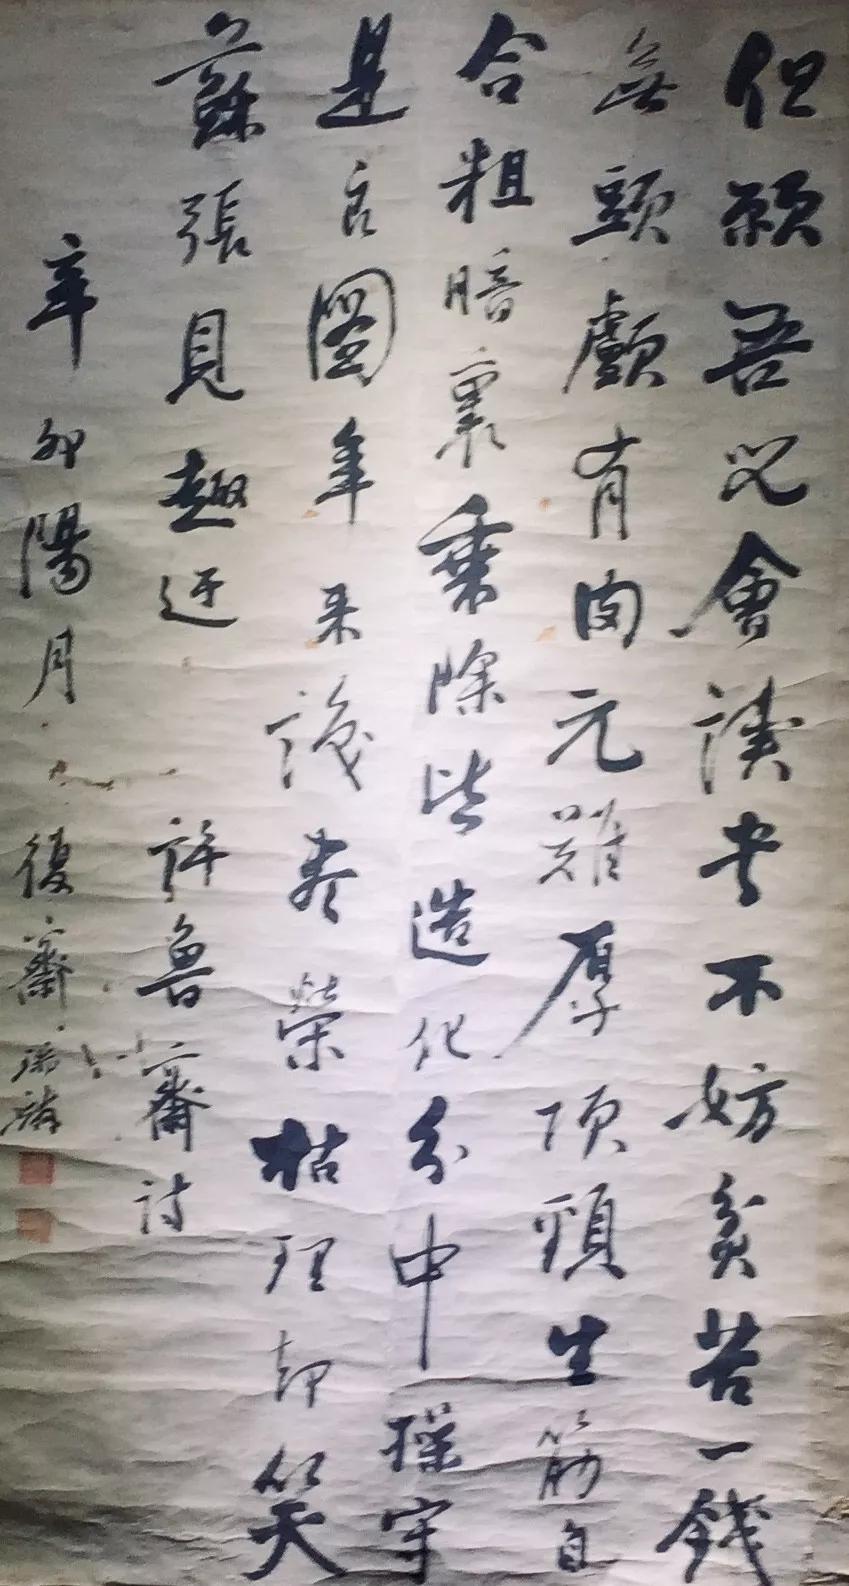 但願吾兒會讀書不妨貧苦一錢
無頭顱有肉元難厚項頸生筋自
合粗暗裏乘除皆造化分中操守
是良圖年來識盡榮枯理却笑
蘇張見趣迂
許魯齋詩
辛卯陽月
復齋